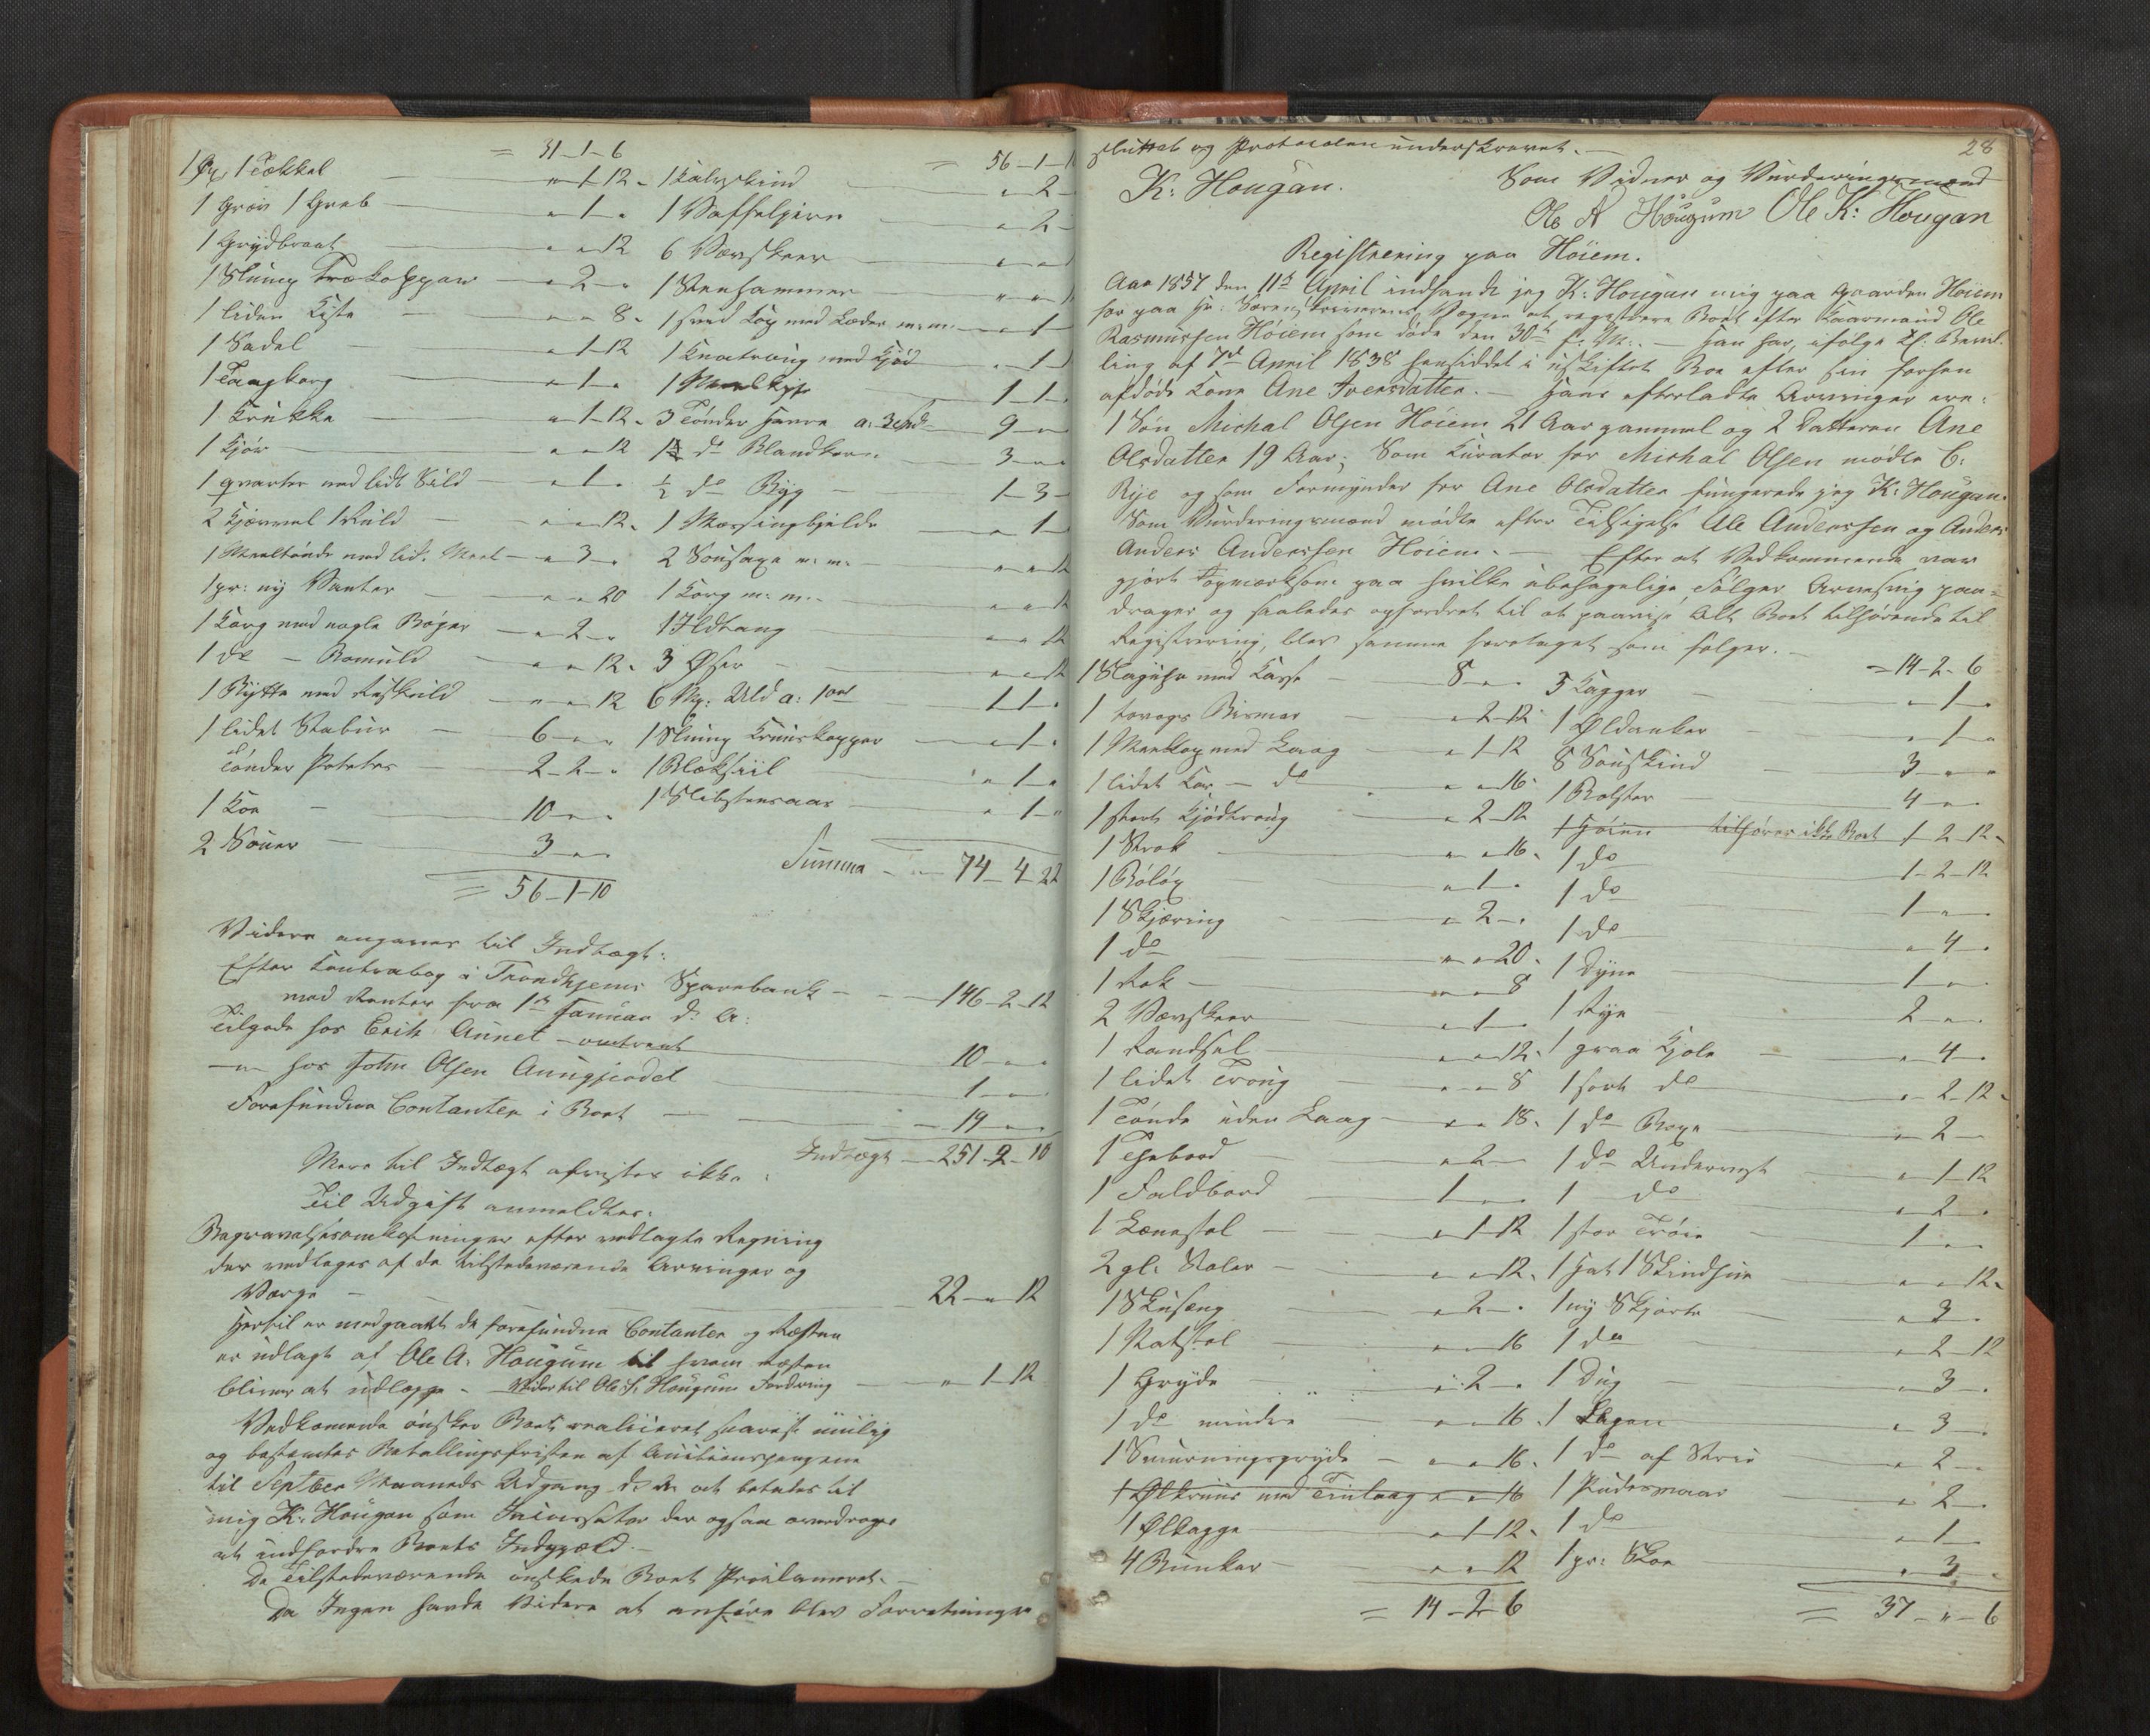 = 31-1-6
1 Øx, 1 Tækkel — " 1-12 -
1 Græv 1 Greb — " 1 - "
1 Grydbraat — " " 12
1 Slump Trækopper — " 2 - "
1 liden Kiste — " " 8 -
1 Sadel — " 1-12
1 Tangkorg — " 1 - "
1 Krukke — " 1-12 -
1 Kjør — " " 12
1 qvarter med lidt Sild — " 1 - "
2 Kjørrel 1 Ruld — " " 12 -
1 Meeltønde med lidt Meel — " 3 - "
1 pr: ny Vanter — " " 20
1 Korg med nogle Bøger — " 2 - "
1 do - Bomuld — " " 12 -
1 Bytte med — " " 12
1 lidet Stabur — 6 - " "
Tønder Poteter — 2-2- "
1 Koe — 10 - " "
2 Souer — 3 - " "
= 56-1-10
= 56-1-10
1 Kalvskind — " 2 -
1 Vaffeljern — " 2 -
6 Vævskeer — " "
1 Steenhammer — " "
1 Kop med Læder m:m: — " 1 -
1 Knatroug med Kjød — " 1 -
1 — 1-1-
3 Tønder Havre a: 3 Spd — 9 - "
1 do Blandkorn — 3 - "
½ do Byg — 1-3-
1 Messingbjelde — " 1 -
2 Sousaxe m: m: — " " 12
1 Korg m: m: — " " 12
1 Ildtang — " " 12
3 Øser — " " 12
6 Mk: Uld a: 1 ort — 1-1-
1 Slump Kruuskopper — " 1 -
1 Blæksiil — " 1 - "
1 Slibsteensaar — " 1 - "
Summa — 74-4-22
Videre angaves til Indtægt:
Efter Contrabog i Trondhjems Sparebank — 146-2-12
med Renter fra 1ste Januar d: A:
Tilgode hos Erik Aunet - omtrent — 10 - " "
— " — hos John Olsen Aungjerdet — 1 - " "
Forefundne Contanter i Boet — 19 - " "
Indtægt — 251-2-10
Mere til Indtægt afvistes ikke.
Til Udgift anmeldtes:
Begravelsesomkostninger efter vedlagte Regning
der vedtages af de tilstedeværende Arvinger og
Værge — 22 - " 12
Hertil er medgaaet de forefundne Contanter og Resten
er udlagt af Ole A. Hougum til hvem Resten
bliver at udlægge. - Videre til Ole J. Hougum Fordring — " 1-12
Vedkomende ønsker Boet realiseret snarest mulig
og bestemtes Betallingsfristen af Auctionspengene
til Septber Maaneds Udgang d. A. at betales til
mig K: Hougan som Incassator der ogsaa overdrages
at indfordre Boets Indgjæld. -
De Tilstedeværende ønskede Boet Proclameret. -
Da Ingen havde Videre at anføre blev Forretningen
28
sluttet og Protocolen underskrevet. -
K: Hougan.
Som Vidner og Vurderingsmænd
Ole A Hougum Ole K: Hougan
Registrering paa Høiem.
Aar 1857 den 11te April indfandt jeg K: Hougan mig paa Gaarden Høiem
for paa Hr: Sorenskriverens Vegne at registrere Boet efter Kaarmand Ole
Rasmussen Høiem som døde den 30te f: M:. - Han har, ifølge Bevil-
ling af 7de April 1838 hensiddet i uskiftet Boe efter sin forhen
afdøde Kone Ane Iversdatter. - Hans efterladte Arvinger ere:
1 Søn Michal Olsen Høiem 21 Aar gammel og 2 Datteren Ane
Olsdatter 19 Aar; Som Kurator for Michal Olsen mødte C:
Rije og som Formynder for Ane Olsdatter fungerede jeg K: Hougan.
Som Vurderingsmænd mødte efter Tilsigelse Ole Anderssen og Anders
Anders Anderssen Høiem. - Efter at Vedkommende var
gjort opmærksom paa hvilke ubehagelige Følger Arvesvig paa-
drager og saaledes opfordret til at paavise Alt Boet tilhørende til
Registrering, blev samme foretaget som følger. -
1 Slaguhr med Kasse — 8 - " "
1 tovogs Bismer — " 2-12
1 Meelkop med Laag — " 1-12
1 lidet Kar - do — " " 16 -
1 stort Kjødtroug — " 2-12
1 Strok — " " 16 -
1 Boløx — " 1 - "
1 Skjæring — " 2 - "
1 do — " " 20 -
1 Rok — " " 8
2 Vævskeer — " 1 - "
1 Randsel — " " 12 -
1 lidet Troug — " " 8
1 Tønde uden Laag — " " 18 -
1 Thebord — " 2 -
1 Foldbord — 1 - " "
1 Lænestol — " 1-12
2 gl. Stoler — " " 12 -
1 Skusæng — " 2 - "
1 Natstol — " " 16
1 Gryde — " 2 - "
1 do mindre — " " 16 -
1 Smurningsgryde — " " 16 -
1 Ølkruus med Tinlaag — " " 16
1 Ølkagge — " 1-12 -
4 Bunker — " " 12
= 14-2-6
= 14-2-6
3 Kagger — " 1 - "
1 Øldanker — " 1 - "
8 Souskind — 3 - " "
1 Bolster — 4 - " "
1 Høien tilhører ikke Boet 1-2-12 -
1 do — 1-2-12
1 do — 1 - " "
1 do — " 4 - "
1 Dyne — 1 - " "
1 Rye — 2 - " "
1 graa Kjole — " 4 - "
1 sort do — " 2-12 -
1 do Boxe — " 2 -
1 do Undervest — " 1-12
1 do — " 2 - "
1 stor Trøie — 1 - " "
1 Hat 1 Skindhue — " " 12 -
1 ny Skjorte — " 3 -
1 do — " 2-12
1 Dug — " 3 - "
1 Lagen — " 3 - "
1 do af Strie — " 2 -
1 Pudevaar — " 2 - "
1 do — " 1 - "
1 pr: Skoe — " 3 -
= 37 - " - 6